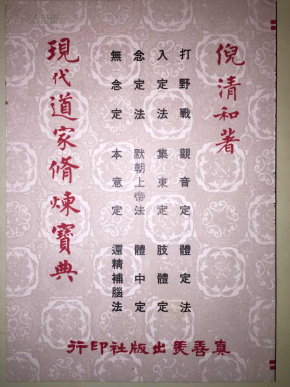 倪清和著
打野戰 觀音定 體定法
入定法 集東定 肢體定
念定法 默朝上帝法 體中定
無念定 本意定 還精補腦法
現代道家脩煉寶典
真善美出版社印行